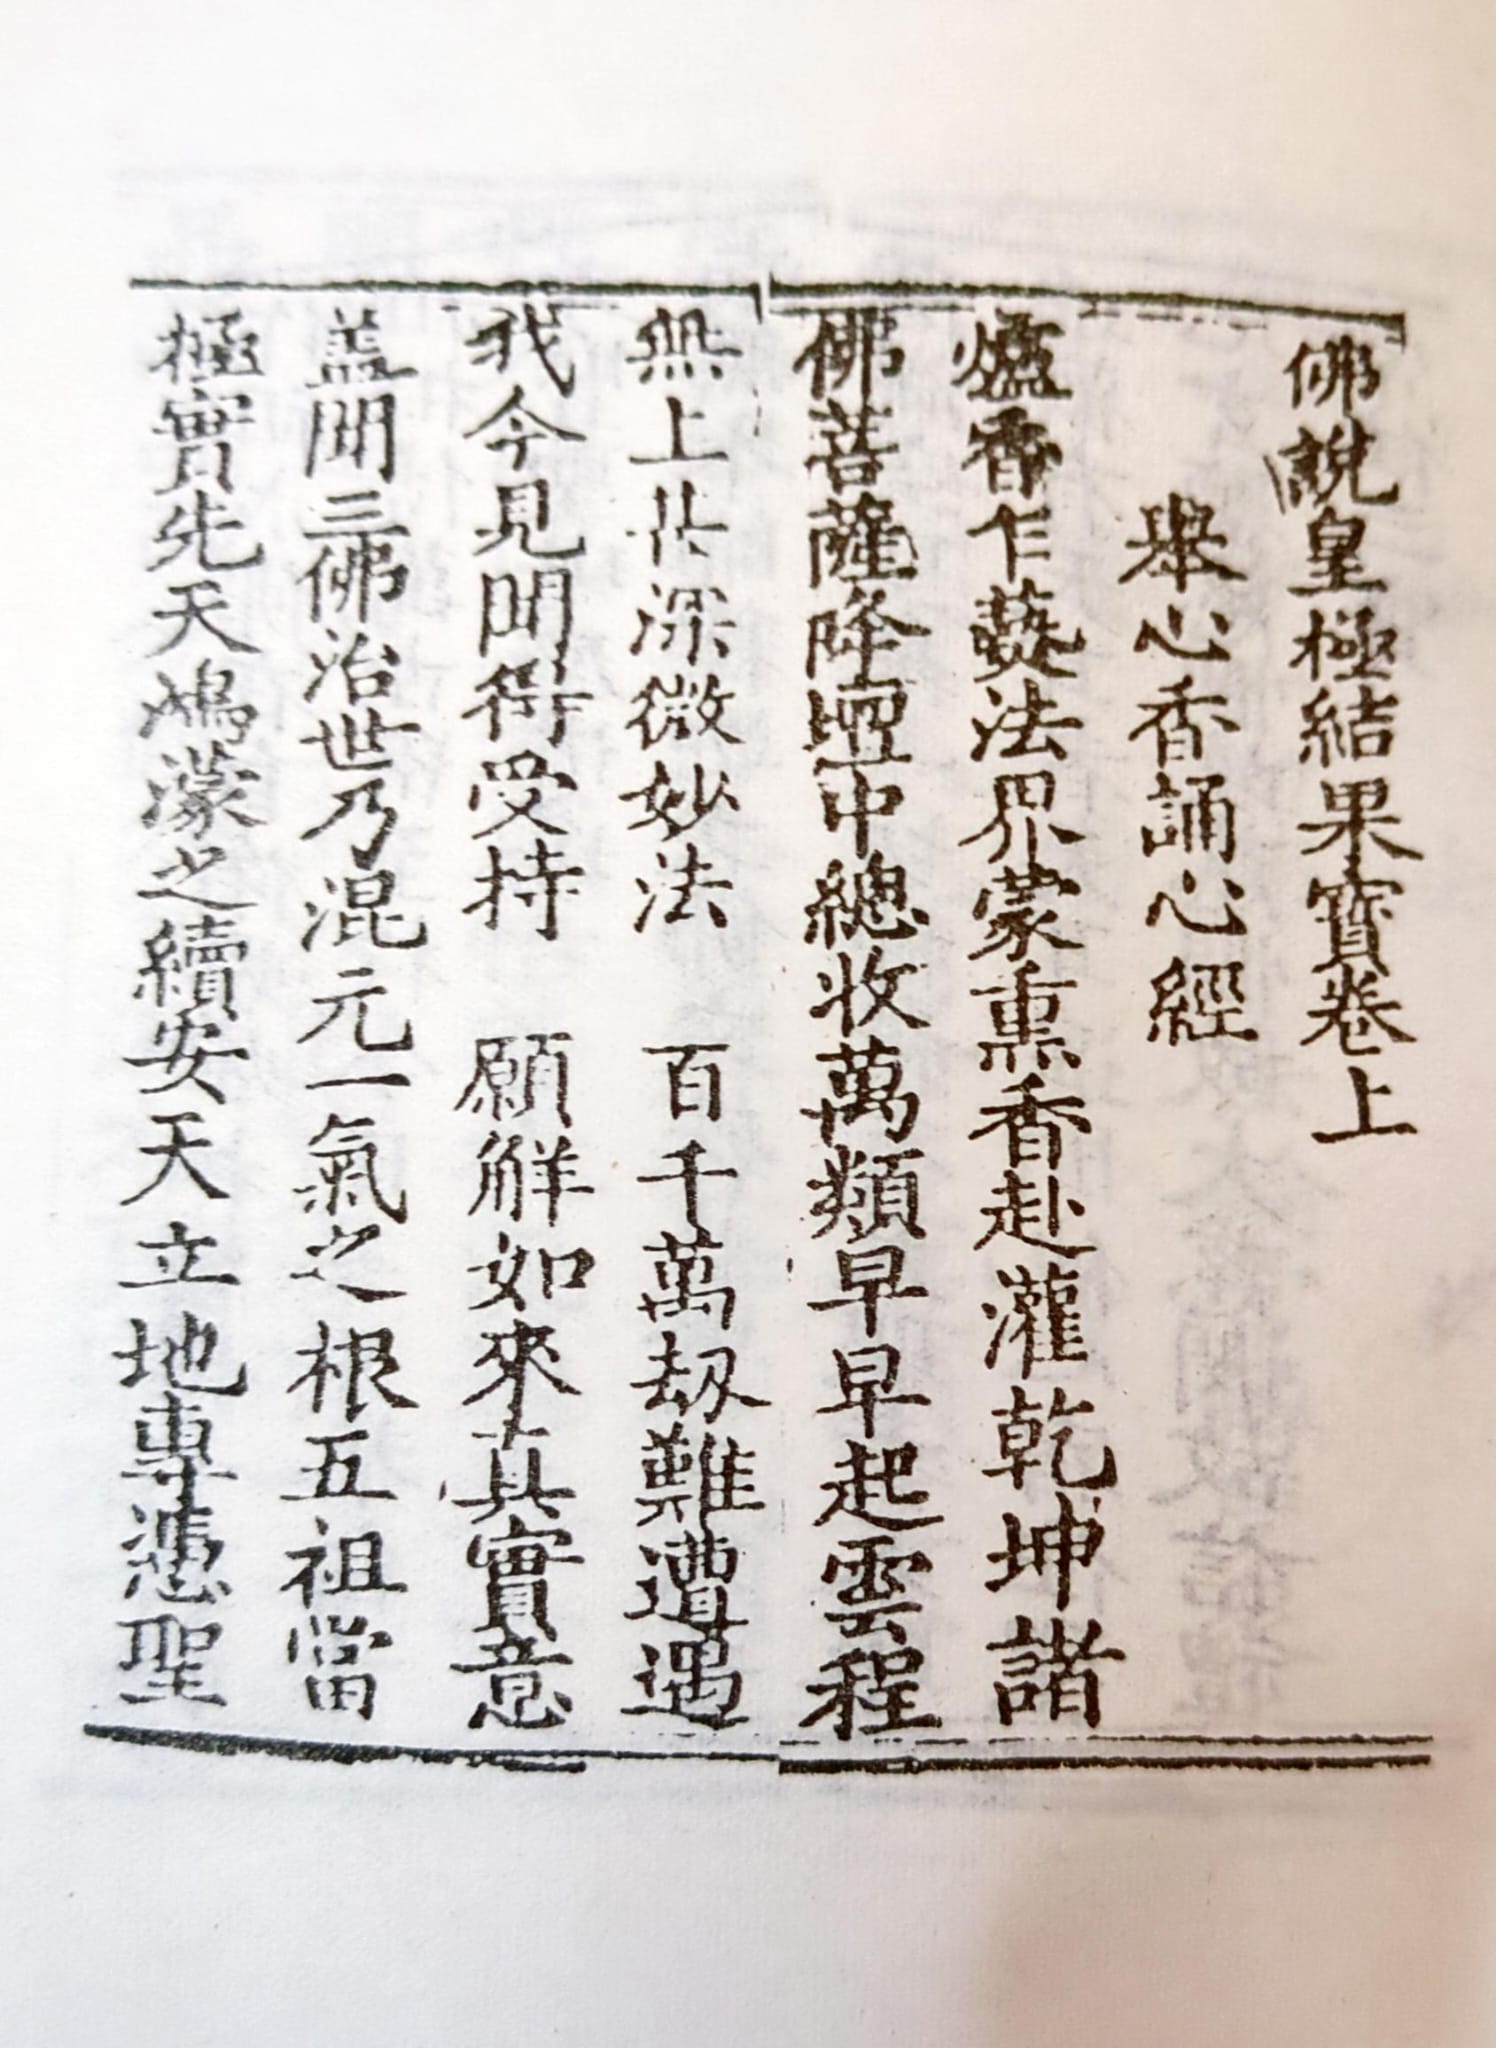 佛說皇極結果寶卷上
舉心香誦心經
爐香乍爇法界蒙熏香赴灌乾坤諸
佛菩薩降壇中總收萬類早早起雲程
無上甚深微妙法　百千萬劫難遭遇
我今見聞得受持　願解如來真實意
盖聞三佛治世乃混元一氣之根五祖當
極實先天鴻濛之續安天立地專憑聖